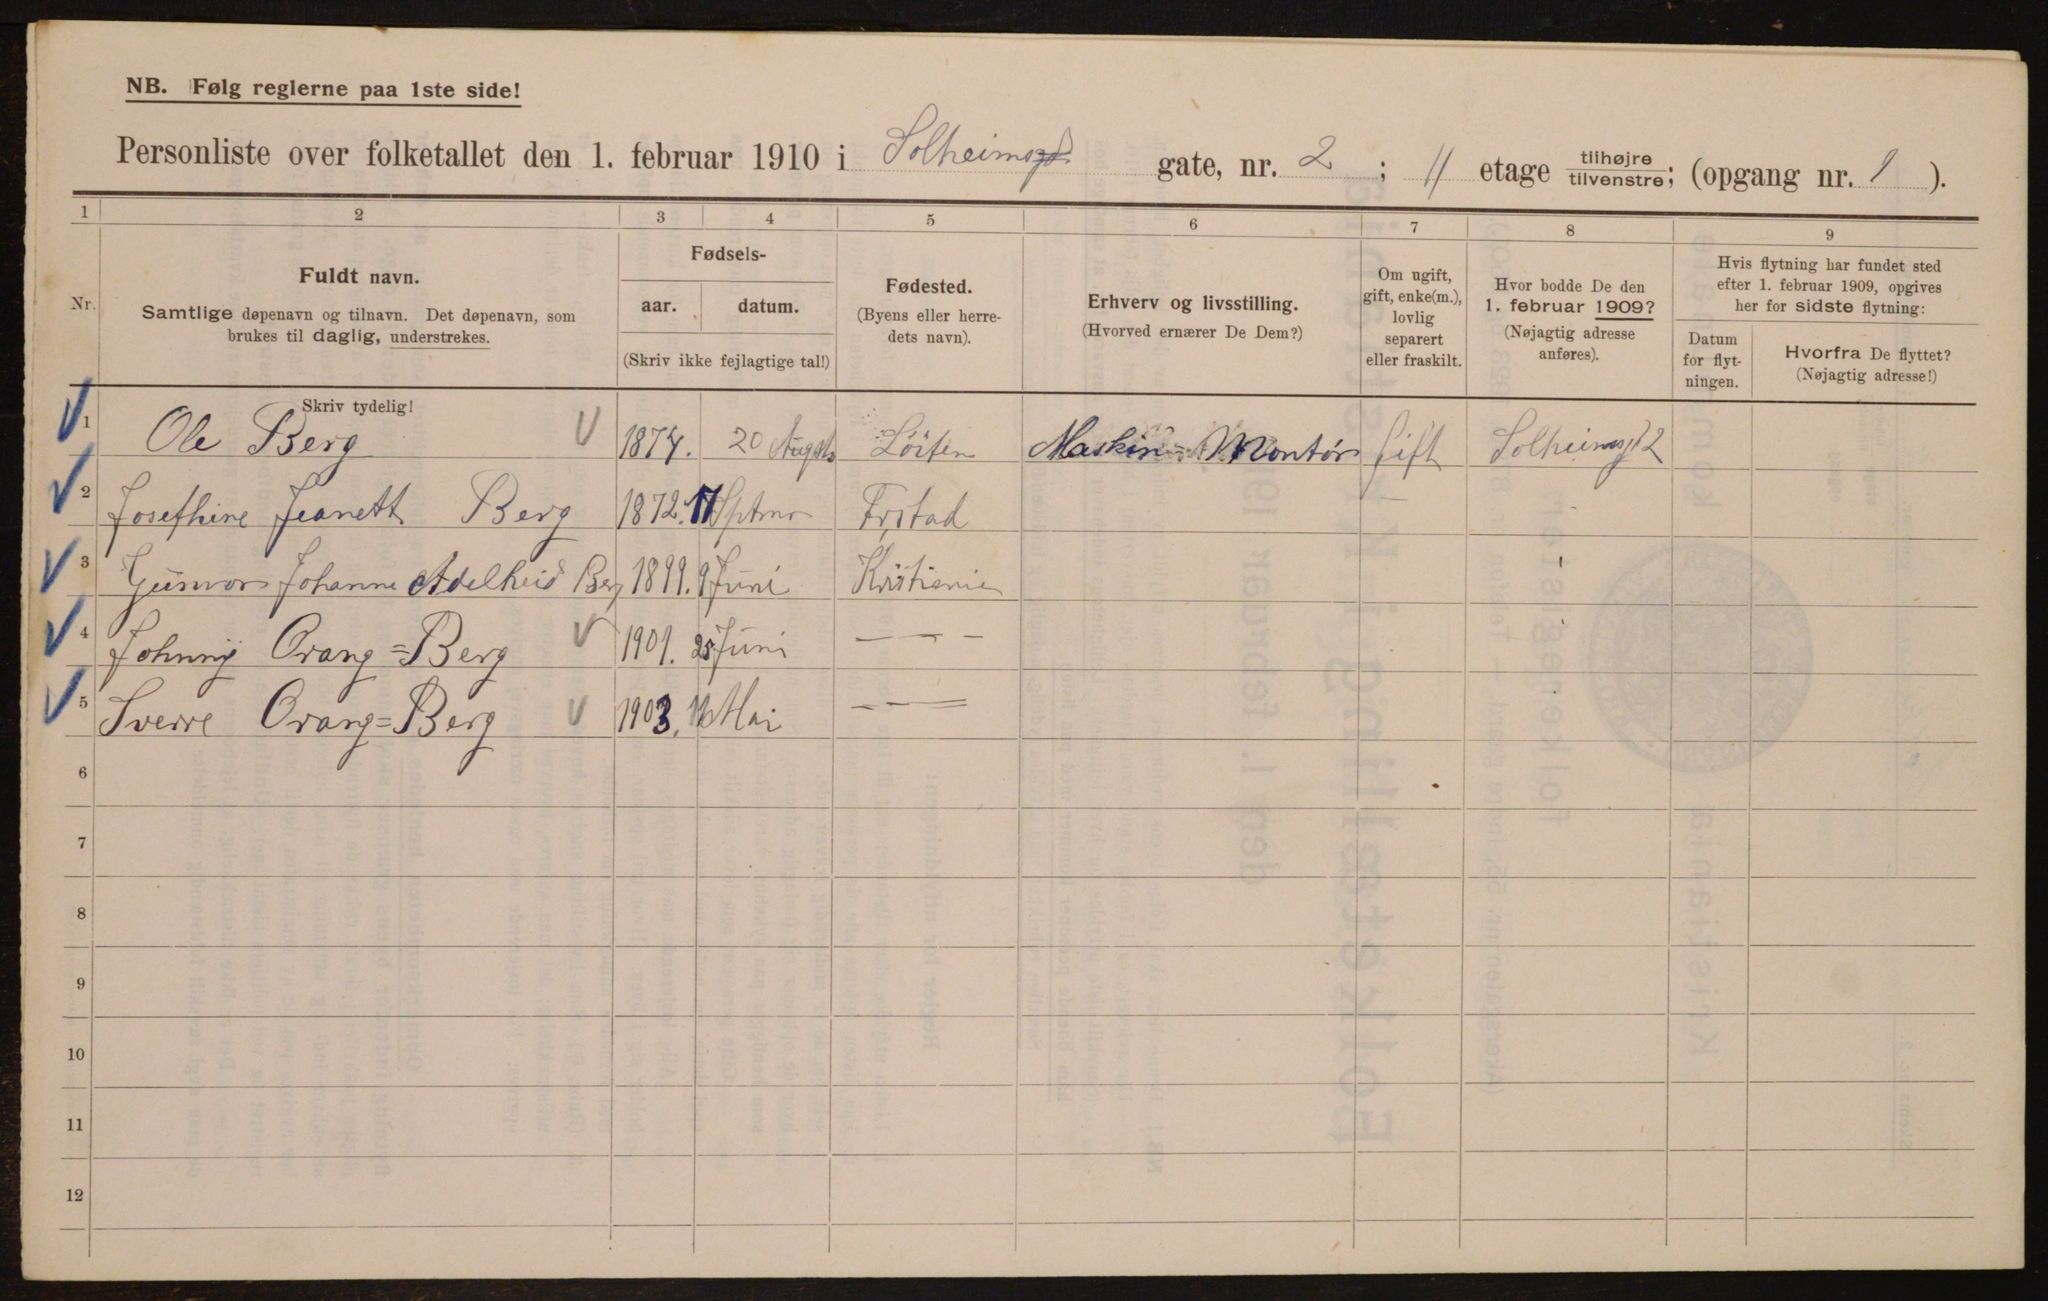 NB. Følg reglerne paa 1ste side!
Personliste over folketallet den 1. februar 1910 i Solheimsgd gate, nr. 2 ; 11 etage tilhøjre/tilvenstre; (opgang nr. 1 ).
1 2 3 4 5 6 7 8 9
Nr.
Fuldt navn.
Samtlige døpenavn og tilnavn. Det døpenavn, som
brukes til daglig, understrekes.
Fødsels-
aar. datum.
(Skriv ikke fejlagtige tal!)
Fødested.
(Byens eller herre-
dets navn).
Erhverv og livsstilling.
(Hvorved ernærer De Dem?)
Om ugift,
gift, enke(m.),
lovlig
separert
eller fraskilt.
Hvor bodde De den
1. februar 1909?
(Nøjagtig adresse
anføres).
Hvis flytning har fundet sted
efter 1. februar 1909, opgives
her for sidste flytning:
Datum
for flyt-
ningen.
Hvorfra De flyttet?
(Nøjagtig adresse!)
Skriv tydelig!
1 Ole Berg 1874. 20 Augsts Löiten Maskin-Montør Gift Solheimsgt 2
2 Josefhine Jeanett Berg 1872. 17 Sptmr Frstad
3 Gunvor Johanne Adelheid Berg 1899. 9 Juni Kristiania
4 Johnny Orang=Berg 1901. 28 Juni — — –
5 Sverre Orang=Berg 1903. 12 Mai — — —
6
7
8
9
10
11
12